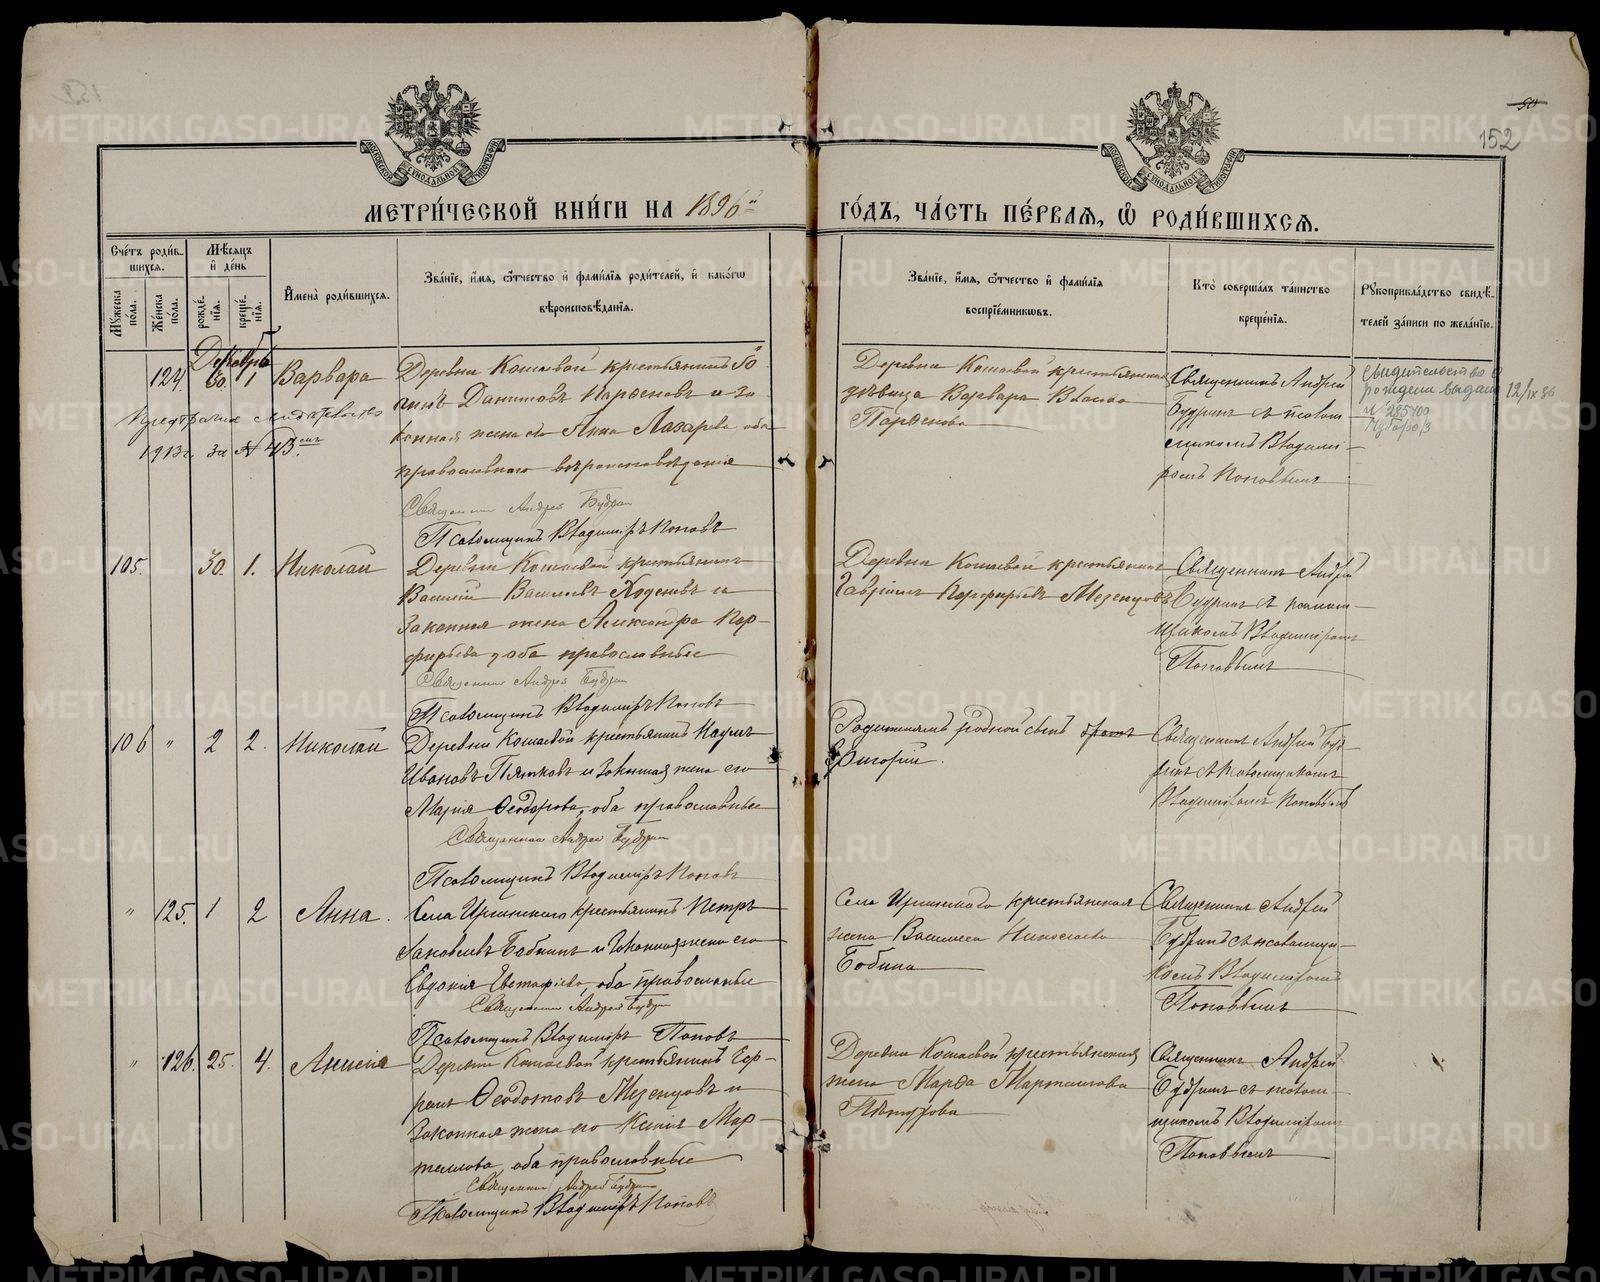 152
МОСКОВСКОЙ СУНОДАЛЬНОЙ ТИПОГРАФІИ
МОСКОВСКОЙ СУНОДАЛЬНОЙ ТИПОГРАФІИ
МЕТРИ́ЧЕСКОЙ КНИ́ГИ НА 1896й
ГО́ДЪ, ЧА́СТЬ ПЕ́РВАЯ, Ѿ РОДИ́ВШИХСЯ.
Сче́тъ роди́в-
шихся.
Мѣ́сяцъ
и҆ день
Му́жеска
по́ла.
Же́нска
по́ла.
рожде́-
нія.
креще́-
нія.
И҆мена̀ роди́вшихся.
Зва́ніе, и҆́мя, ѻ҆́тчество и҆ фами́лія роди́телей, и҆ како́гѡ
вѣроисповѣ́данія.
Зва́ніе, и҆́мя, ѻ҆́тчество и҆ фами́лія
воспріе́мниковъ.
Кто̀ соверша́лъ та́инство
креще́нія.
Рукоприкла́дство свидѣ́-
телей за́писи по жела́нію.
Декабрь
124. 30. 1 Варвара
Деревни Кошаевой крестьянинъ
Даниловъ Парѳеновъ и за
конная жена его Анна Лазарева оба
православнаго вѣроисповѣданія
Священникъ Андрей Будрин
Псаломщикъ Владиміръ Поповъ
1913 г. за № 43
Деревни Кошаевой крестьянская
дѣвица Варвара Власова
Парѳенова
Священникъ Андрей
Будринъ съ псалом
щикомъ Владимі-
ромъ Поповымъ
Свидетельство о
рождении выдано
12/IX 36
105. 30. 1. Николай
Деревни Кошаевой крестьянинъ
Василій Васильевъ и
Законная жена Александра Пор-
фирьева, оба православные
Священникъ Андрей Будрин
Псаломщикъ Владиміръ Поповъ
Деревни Кошаевой крестьянинъ
Гавріилъ Порфирьевъ Мезенцовъ
Священникъ Андрей
Будринъ съ псалом-
щикомъ Владиміромъ
Поповымъ
106 " 2 2. Николай
Деревни Кошаевой крестьянинъ Наумъ
Ивановъ Пятковъ и Законная жена его
Марія Ѳеодорова, оба православные
Священникъ Андрей Будрин
Псаломщикъ Владиміръ Поповъ
родной сынъ
Григорій.
Священникъ Андрей Буд-
ринъ съ псаломщикомъ
Владиміромъ Поповымъ
" 125. 1 2 Анна.
Села Иргинского крестьянинъ Петръ
Іаковлевъ Бабкинъ и Законная жена его
Евдокія Евстафіева, оба православные
Священникъ Андрей Будрин
Псаломщикъ Владиміръ Поповъ
Села Иргинскаго крестьянская
жена Василиса Николаева
Священникъ Андрей
Будринъ съ псаломщи-
комъ Владиміромъ
Поповымъ
" 126. 25. 4. Анисія
Деревни Кошаевой крестьянинъ Еф-
ремъ Ѳеодотовъ Мезенцовъ и
Законная жена его Ксенія Мар-
темова, оба православные
Священникъ Андрей Будрин
Псаломщикъ Владиміръ Поповъ
Деревни Кошаевой крестьянская
жена Марѳа
Священникъ Андрей
Будринъ съ псалом-
щикомъ Владиміромъ
Поповымъ